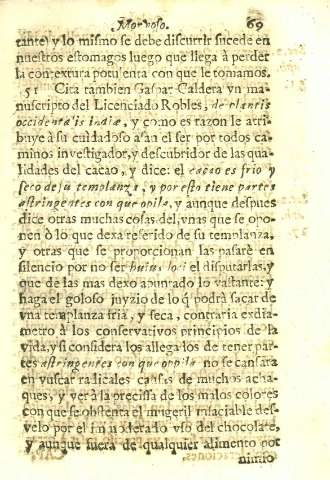 Morboso. 69
tante y lo mismo se debe discurrir sucede en
nuestros estomagos luego que llega à perder
la contextura potulenta con que le tomamos.
51 Cita tambien Gaspar Caldera vn ma-
nuscripto del Licenciado Robles, de plantis
occidentalis indiæ, y como es razon le atri-
buye à su cuidadoso afan el ser por todos ca-
minos investigador, y descubridor de las qua-
lidades del cacao, y dice: el cacao es frio y
seco de su templanza, y por esto tiene partes
astringentes con que opila, y aunque despues
dice otras muchas cosas del, vnas que se opo-
nen ò lo que dexa referido de su templanza,
y otras que se proporcionan las pasarè en
silencio por no ser huius loci el disputarlas, y
que de las mas dexo apuntado lo vastante: y
haga el goloso juyzio de lo q̃ podrà sacar de
vna templanza fria, y seca, contraria exdia-
metro à los conservativos principios de la
vida, y si considera los allega los de tener par-
tes astringentes con que opila no se cansarà
en vuscar radicales causas de muchos acha-
ques, y ver à la precissa de los malos colores
con que se obstenta el mugeril insaciable des-
velo por el inmoderado vso del chocolate,
y aunque fuera de qualquier alimento por
nimio